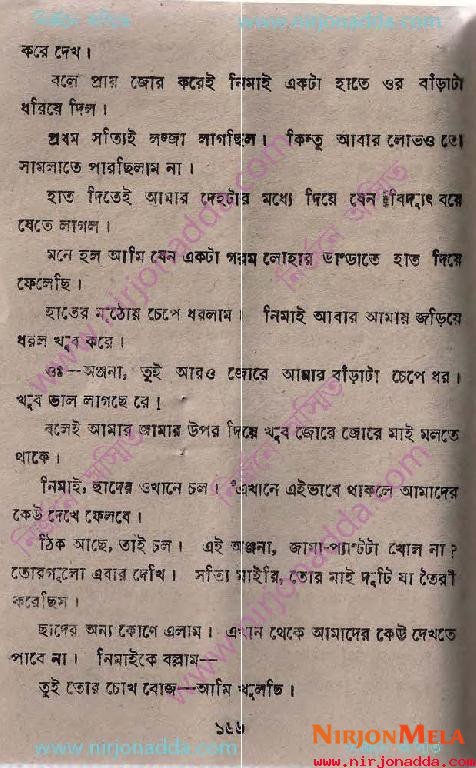 নির্জন মেলা
www.nirjonadda.com
করে দেখ।
বলে প্রায় জোর করেই নিমাই একটা হাতে ওর বাঁড়াটা
ধরিয়ে দিল।
প্রথম সত্যিই লজ্জা লাগছিল। কিন্তু আবার লোভও তো
সামলাতে পারছিলাম না।
হাত দিতেই আমার দেহটার মধ্যে দিয়ে যেন বিদ্যুৎ বয়ে
যেতে লাগল।
মনে হল আমি যেন একটা গরম লোহার ডাণ্ডাতে হাত দিয়ে
ফেলেছি।
হাতের মুঠোয় চেপে ধরলাম। নিমাই আবার আমায় জড়িয়ে
ধরল খুব করে।
ওঃ—অঞ্জনা, তুই আরও জোরে আমার বাঁড়াটা চেপে ধর।
খুব ভাল লাগছে রে!
বলেই আমার জামার উপর দিয়ে খুব জোরে জোরে মাই মলতে
থাকে।
নিমাই, ছাদের ওখানে চল। এখানে এইভাবে থাকলে আমাদের
কেউ দেখে ফেলবে।
ঠিক আছে, তাই চল। এই অঞ্জনা, জামা-প্যান্টটা খোল না?
তোরগুলো এবার দেখি। সত্যি মাইরি, তোর মাই দুটি যা তৈরী
করেছিস।
ছাদের অন্য কোণে এলাম। এখান থেকে আমাদের কেউ দেখতে
পাবে না। নিমাইকে বল্লাম—
তুই তোর চোখ বোজ—আমি খুলেছি।
www.nirjonadda.com
NIRJONMELA
www.nirjonadda.com